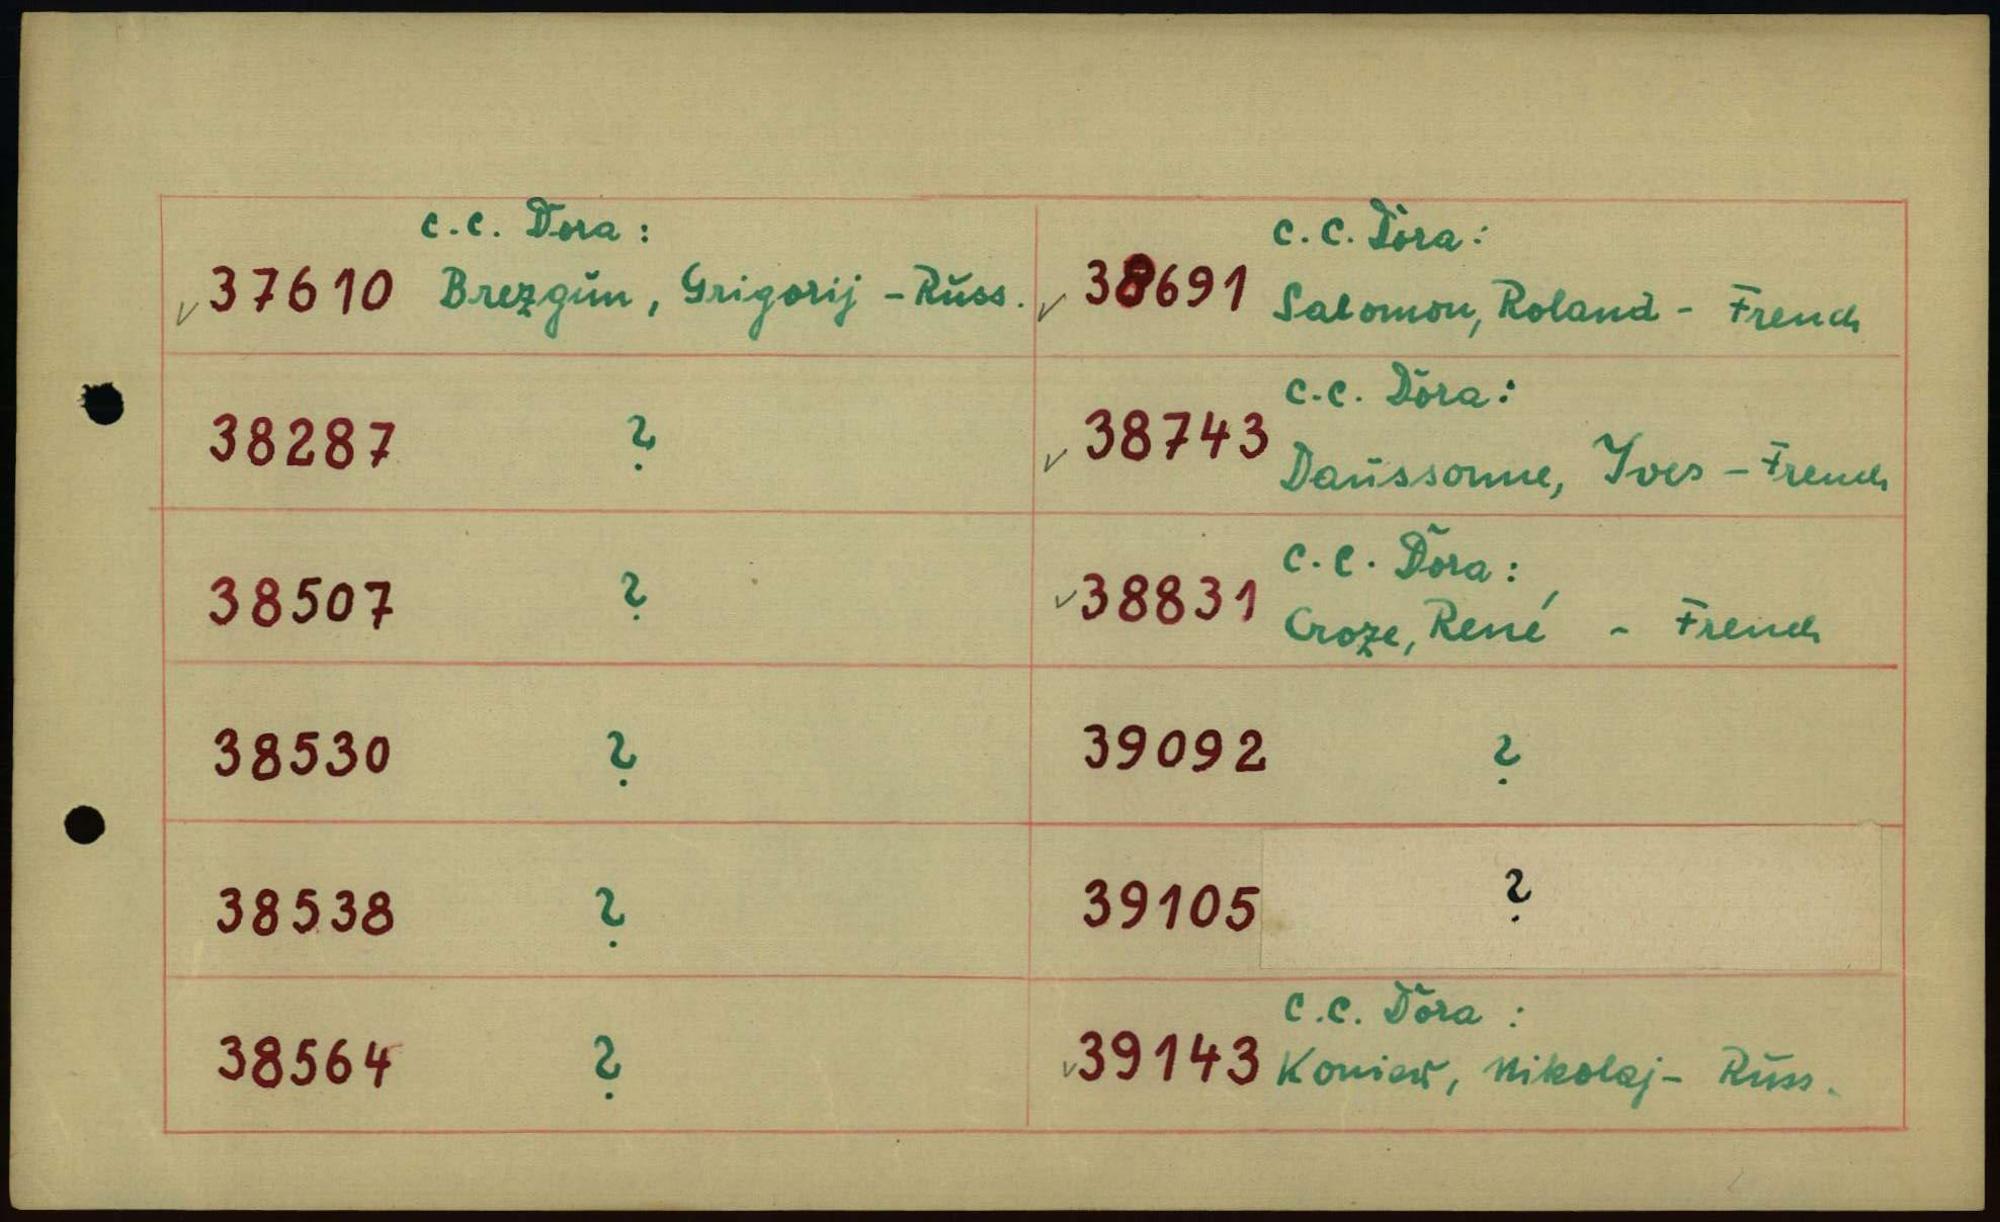 c.c. Dora:
✓ 37610 Brezgŭn, Grigorij - Rŭss.
38287 ?
38507 ?
38530 ?
38538 ?
38564 ?
c.c. Dora:
✓ 38691 Salomon, Roland - French
c.c. Dora:
✓ 38743 Daŭssonne, Yves - French
c.c. Dora:
✓ 38831 Croze, René - French
39092 ?
39105 ?
c.c. Dora:
✓ 39143 Koniew, Nikolaj - Rŭss.